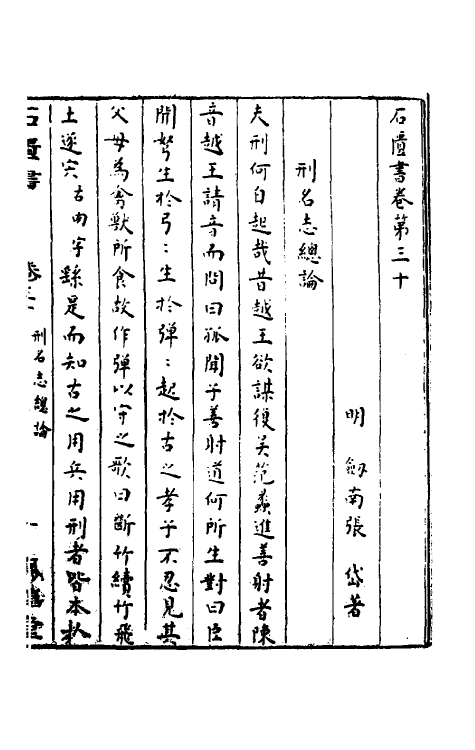 石匱書卷第三十
明 劔南張 岱著
刑名志總論
夫刑何自起哉昔越王欲謀復吴范蠡進善射者陳
音越王請音而問曰孤聞子善射道何所生對曰臣
聞弩生於弓：生於弹：起於古之孝子不忍見其
父母為禽獸所食故作弹以守之歌曰斷竹續竹飛
土逐宍古肉字繇是而知古之用兵用刑者皆本扵
石匱書 卷三十 刑名志總論 一 鳳嬉堂